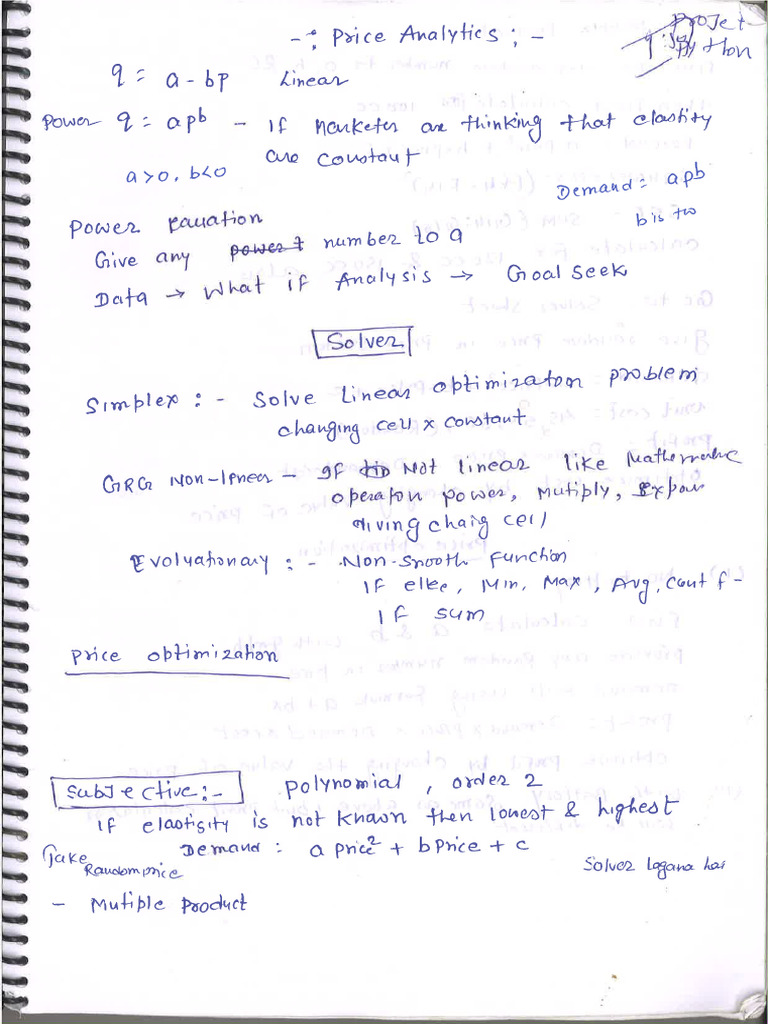 -: Price Analytics :-
Projet
Python
q = a - bp Linear
Power q = apᵇ - If Marketer are thinking that elastity
are constant
a > 0, b<0
Demand = apb
b is two
Power Equation
Give any number to a
Data → What if Analysis → Goal Seek
Solver
Simplex : - Solve Linear optimizaton problem
changing cell x constant
GRG Non-linear - If Not linear like Mathematic
operaton power, Mutiply,
Evoluationary : - Non-Smooth Function
If elke, Min, Max, Avg, Count f -
If sum
Price optimization
Subjective :- Polynomial, order 2
If elastisity is not known then lowest & highest
Take
Random price
Demand = a price² + b Price + c
Solver lagana hai
- Mutiple Product